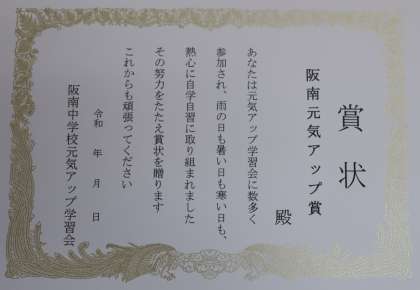 賞状
阪南元気アップ賞
殿
あなたは元気アップ学習会に数多く
参加され、雨の日も暑い日も寒い日も、
熱心に自学自習に取り組まれました
その努力をたたえ賞状を贈ります
これからも頑張ってください
令和 年 月 日
阪南中学校元気アップ学習会